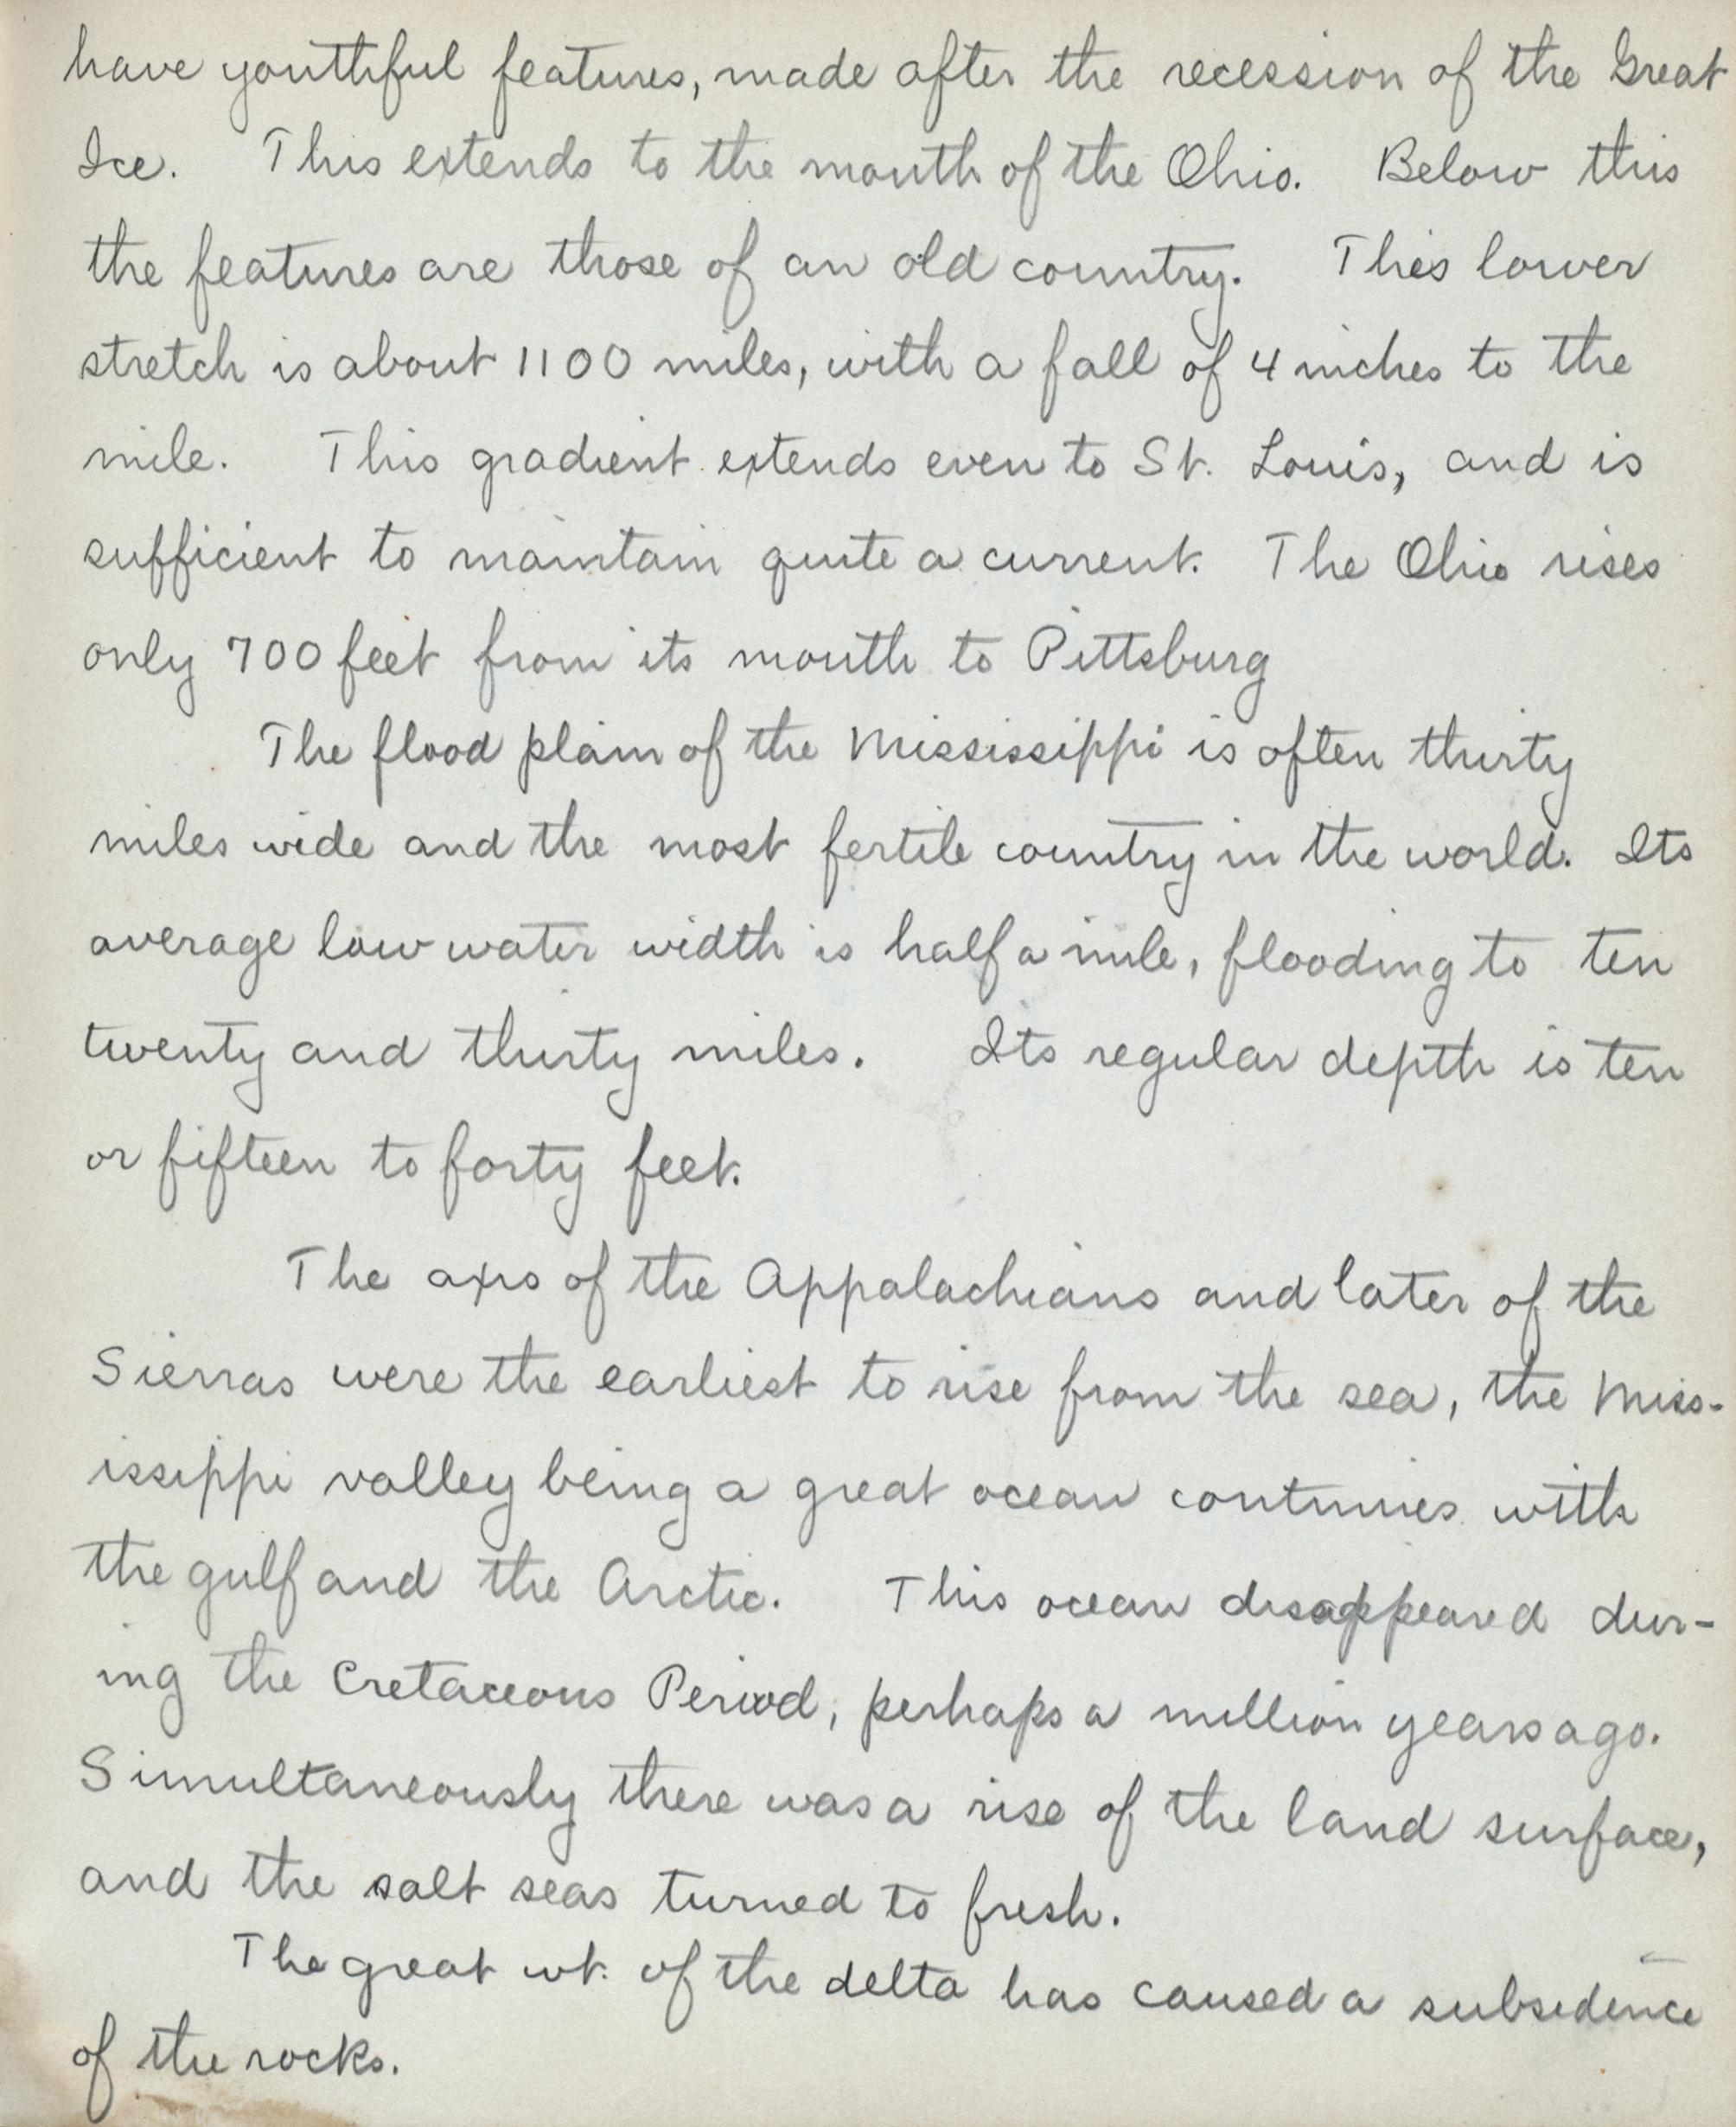 have youthful features, made after the recession of the Great
Ice. This extends to the mouth of the Ohio. Below this
the features are those of an old country. This lower
stretch is about 1100 miles, with a fall of 4 inches to the
mile. This gradient extends even to St. Louis, and is
sufficient to maintain quite a current. The Ohio rises
only 700 feet from its mouth to Pittsburg
The flood plain of the Mississippi is often thirty
miles wide and the most fertile country in the world. Its
average low water width is half a mile, flooding to ten
twenty and thirty miles. Its regular depth is ten
or fifteen to forty feet.
The axis of the Appalachians and later of the
Sierras were the earliest to rise from the sea, the Miss-
issippi valley being a great ocean continues with
the gulf and the Arctic. This ocean disappeared dur-
ing the Cretaceous Period, perhaps a million years ago.
Simultaneously there was a rise of the land surface,
and the salt seas turned to fresh.
The great wt. of the delta has caused a subsidence
of the rocks.